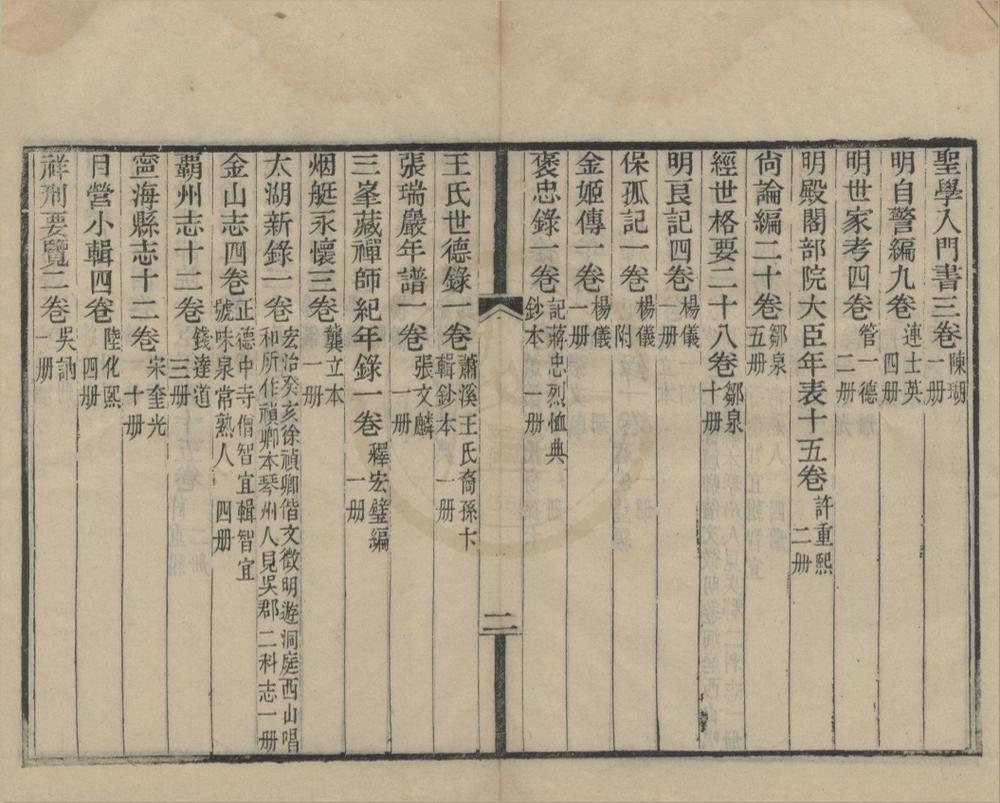 聖學入門書三卷 陳瑚 一册
明自警編九卷 連士英 四册
明世家考四卷 管一德 二册
明殿閣部院大臣年表十五卷 許重熙 二册
尙論編二十卷 鄒泉 五册
經世格要二十八卷 鄒泉 十册
明良記四卷 楊儀 一册
保孤記一卷 楊儀 附
金姬傳一卷 楊儀 一册
褒忠錄一卷 記蔣忠烈恤典 鈔本
二
王氏世德錄一卷 蕭溪王氏裔孫卞輯鈔本 一册
張瑞巖年譜一卷 張文麟 一册
三峯藏禪師紀年錄一卷 釋宏璧編 一册
烟艇永懷三卷 龔立本 一册
太湖新錄一卷 宏治癸亥徐禎卿偕文徵明遊洞庭西山唱和所作禎卿本琴州人見吳郡二科志一册
金山志四卷 正德中寺僧智宜輯智宜號味泉常熟人 四册
霸州志十二卷 錢達道 三册
寧海縣志十二卷 宋奎光 十册
目營小輯四卷 陸化熙 四册
祥刑要覽二卷 吳訥 一册